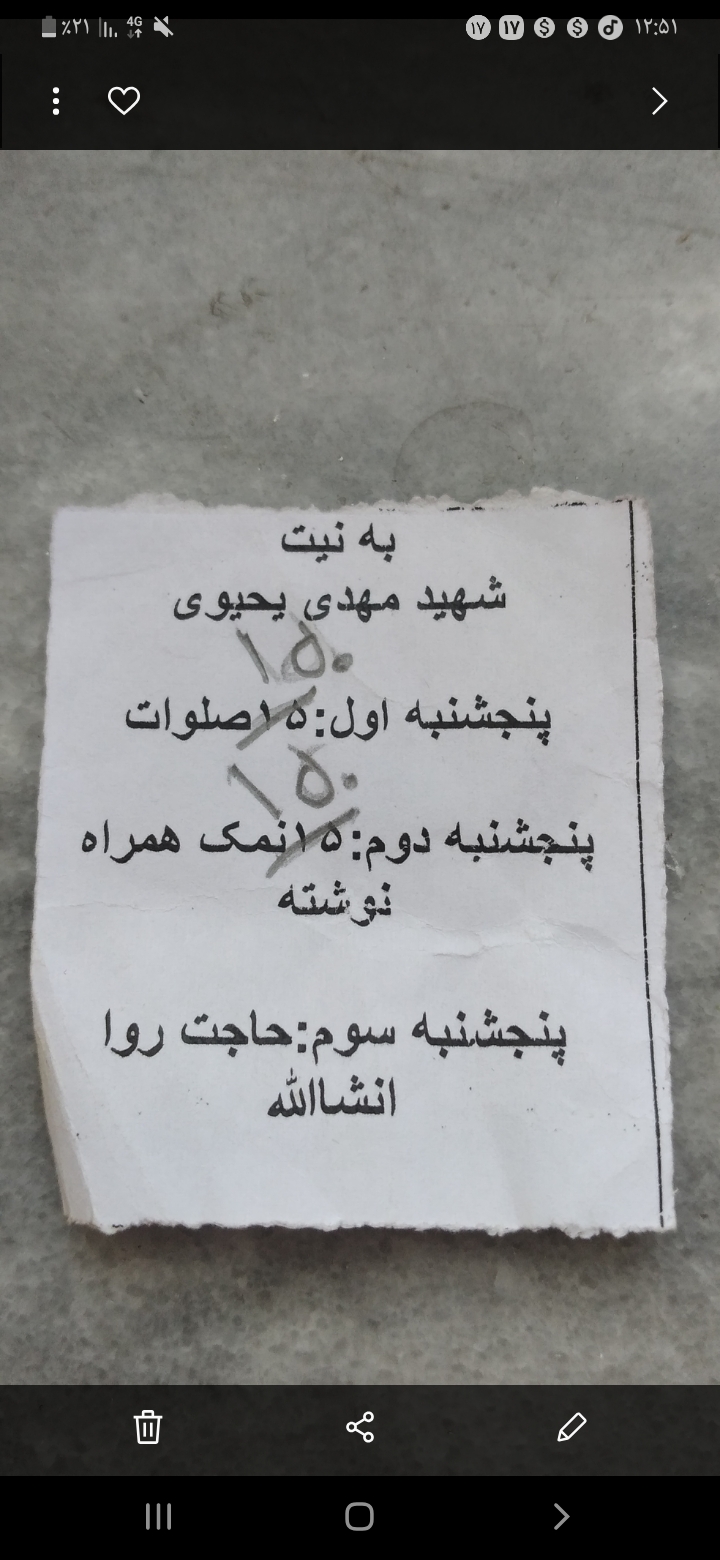 ٪۲۱ 4G ۱۷ ۱۷ $ $ ۱۲:۵۱
به نیت
شهید مهدی یحیوی
۱۵۰
پنجشنبه اول:۱۵صلوات
۱۵۰
پنجشنبه دوم:۱۵نمک همراه
نوشته
پنجشنبه سوم:حاجت روا
انشاالله